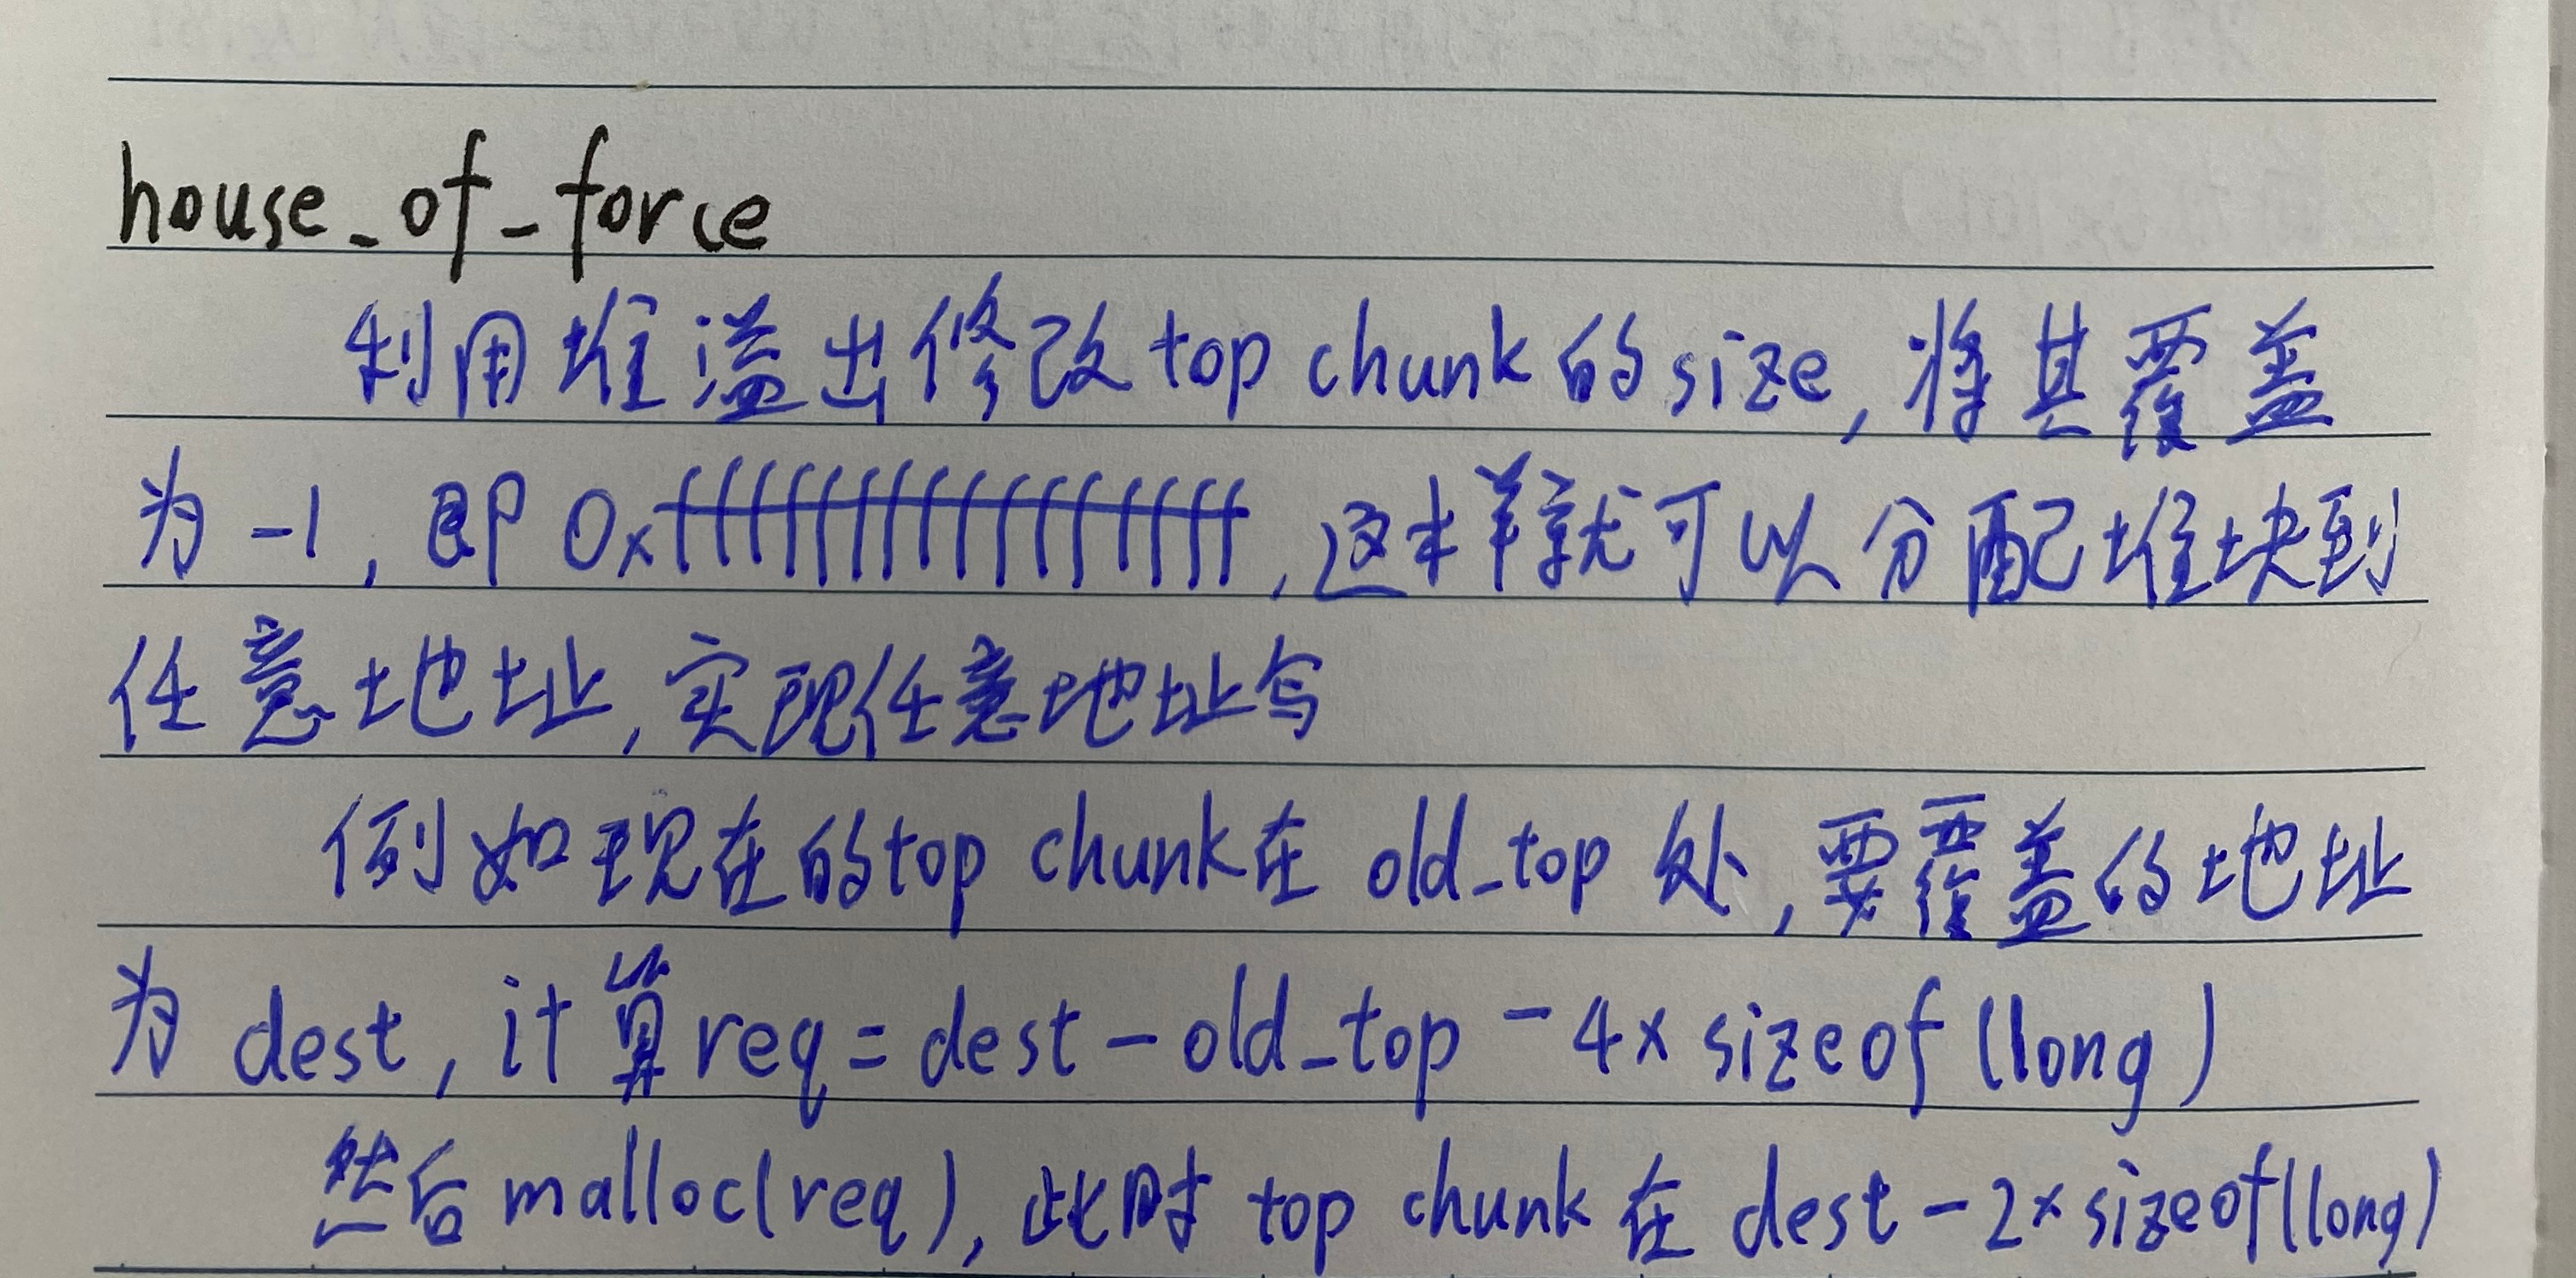 house_of_force
利用堆溢出修改top chunk的size,将其覆盖
为-1,即0xffffffffffffffff,这样就可以分配堆块到
任意地址,实现任意地址写
例如现在的top chunk在old_top处,要覆盖的地址
为dest,计算req=dest-old_top-4×sizeof(long)
然后malloc(req),此时top chunk在dest-2×sizeof(long)